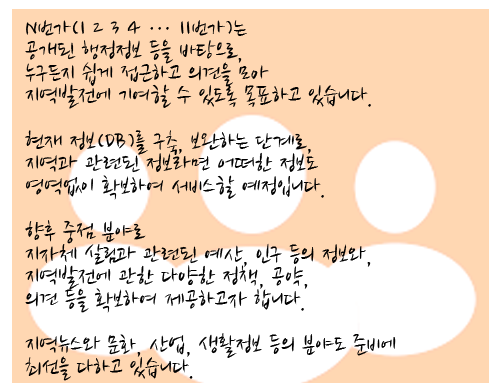 N번가(1 2 3 4 … 11번가)는
공개된 행정정보 등을 바탕으로,
누구든지 쉽게 접근하고 의견을 모아
지역발전에 기여할 수 있도록 목표하고 있습니다.
현재 정보(DB)를 구축, 보완하는 단계로,
지역과 관련된 정보라면 어떠한 정보도
영역없이 확보하여 서비스할 예정입니다.
향후 중점 분야로
지자체 살림과 관련된 예산, 인구 등의 정보와,
지역발전에 관한 다양한 정책, 공약,
의견 등을 확보하여 제공하고자 합니다.
지역뉴스와 문화, 산업, 생활정보 등의 분야도 준비에
최선을 다하고 있습니다.